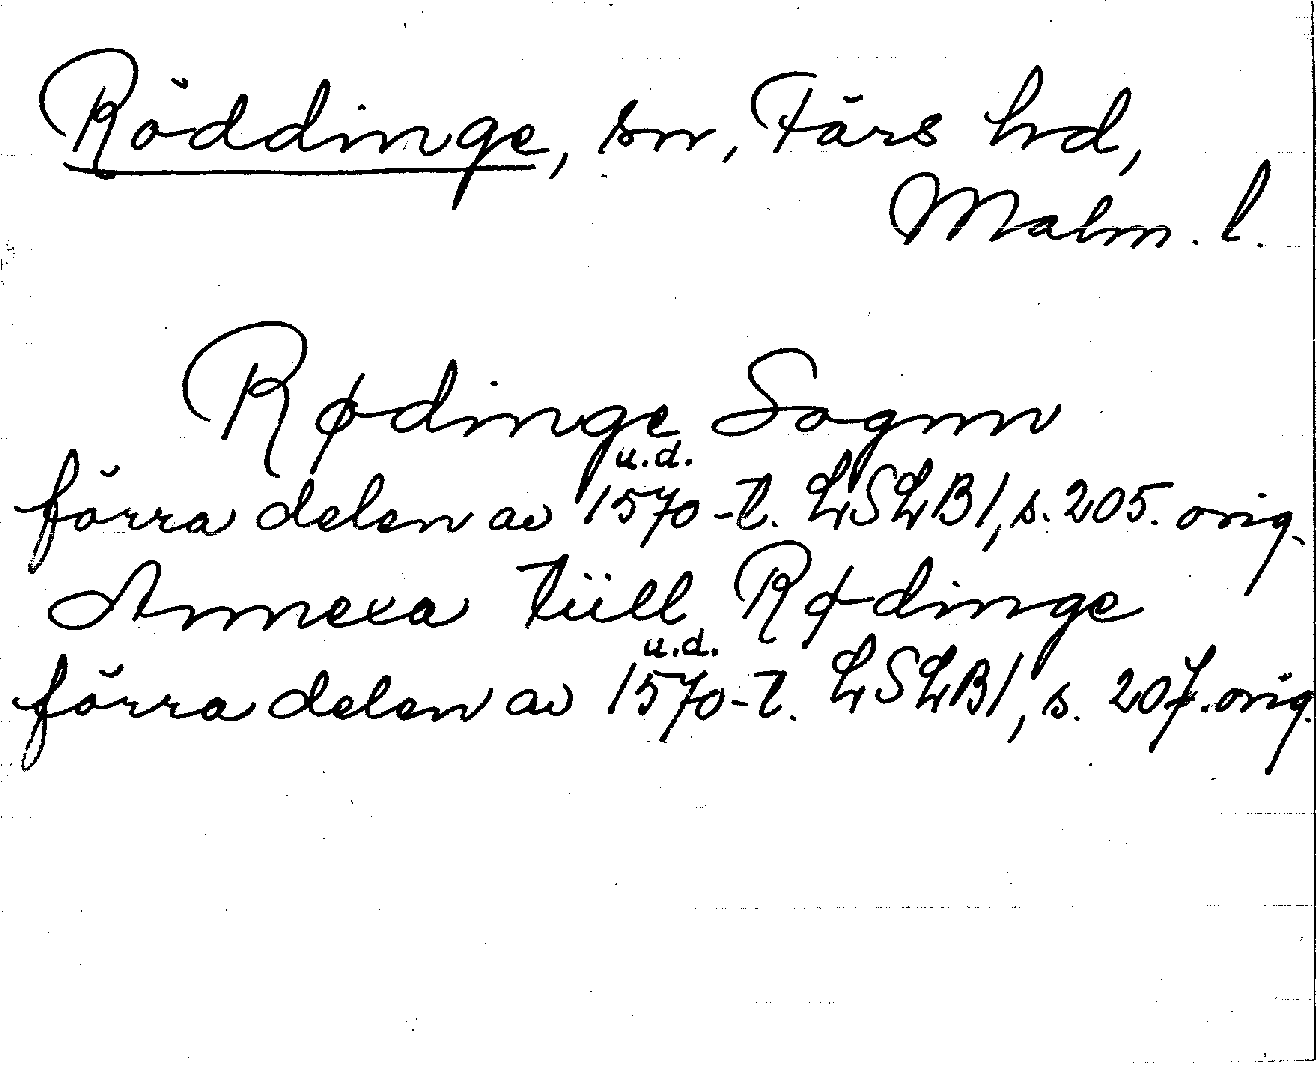 Röddinge, sn, Färs hd,
Malm. l.
Rødinge Sognn
u.d.
förra delen av 1570-t. LSLB1, s. 205. orig.
Annexa tiill Rødinge
u.d.
förra delen av 1570-t. LSLB1, s. 207. orig.